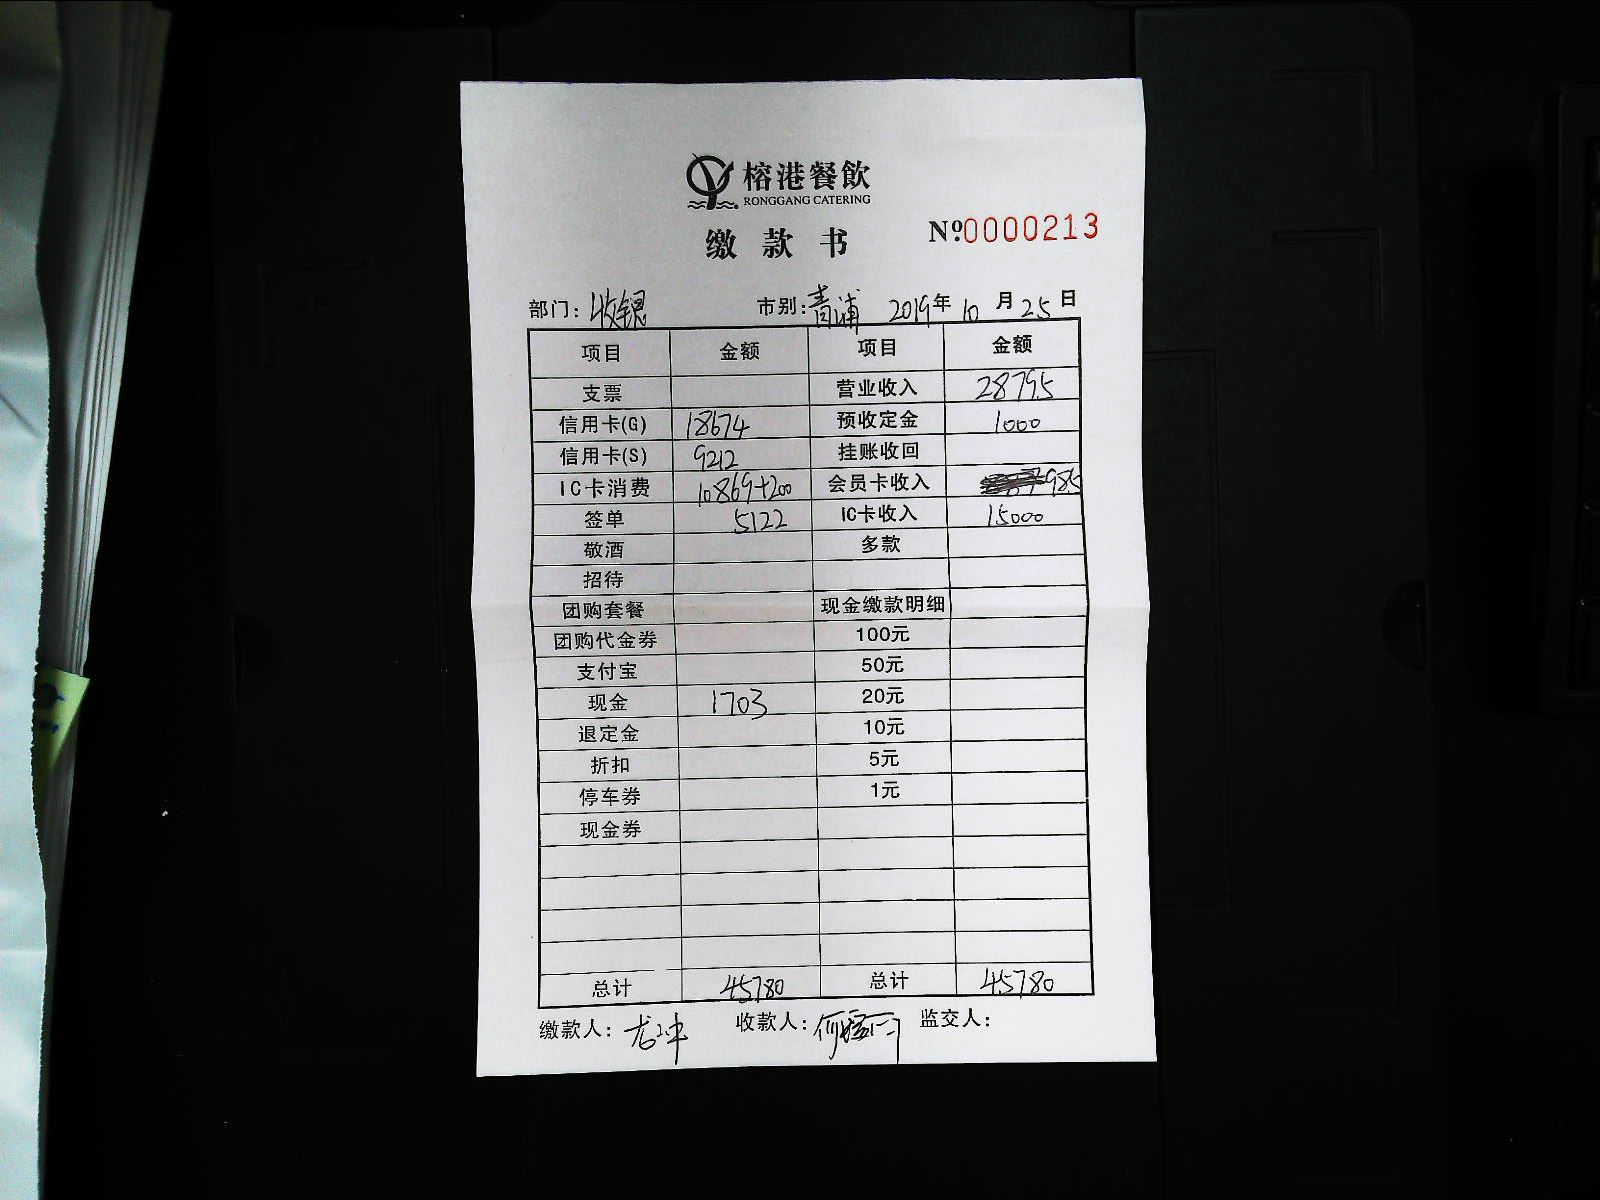 榕港餐飲
RONGGANG CATERING
缴款书
Nº0000213
部门：收银 市别：青浦 2019年10月25日
项目 金额 项目 金额
支票 营业收入 28795
信用卡(G) 18674 预收定金 1000
信用卡(S) 9212 挂账收回
IC卡消费 10869+200 会员卡收入 985
签单 5122 IC卡收入 15000
敬酒 多款
招待
团购套餐 现金缴款明细
团购代金券 100元
支付宝 50元
现金 1703 20元
退定金 10元
折扣 5元
停车券 1元
现金券
总计 45780 总计 45780
缴款人： 收款人： 监交人：